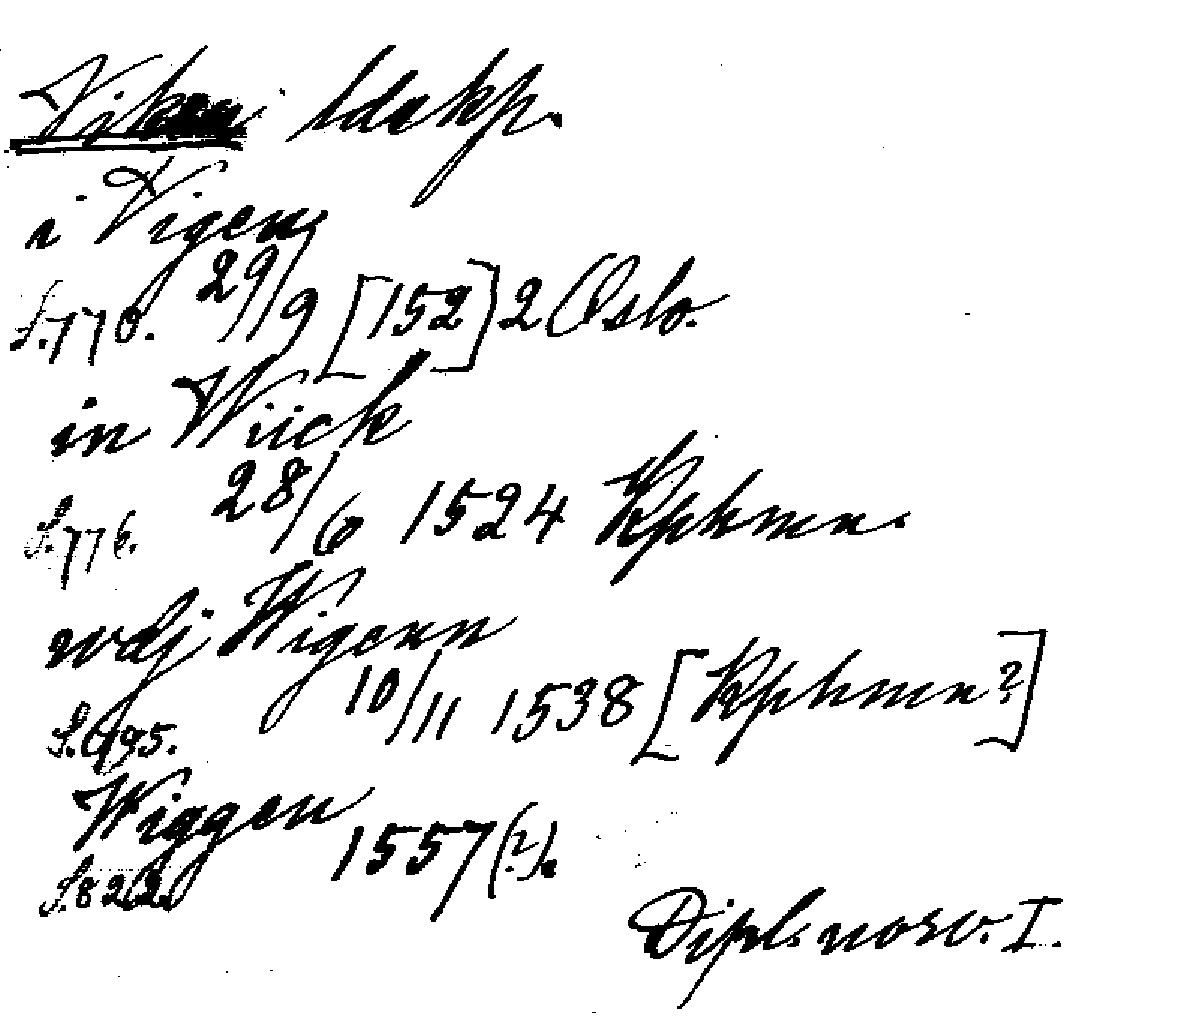 Viken ldskp.
i Vigen
S. 770. 29/9 [152]2 Oslo.
in Wiick
S. 776. 28/6 1524 Kphmn.
wdj Wigenn
10/11 1538 [Kphmn?]
Wiggen
S. 822. 1557(?).
Dipl. norv. I.